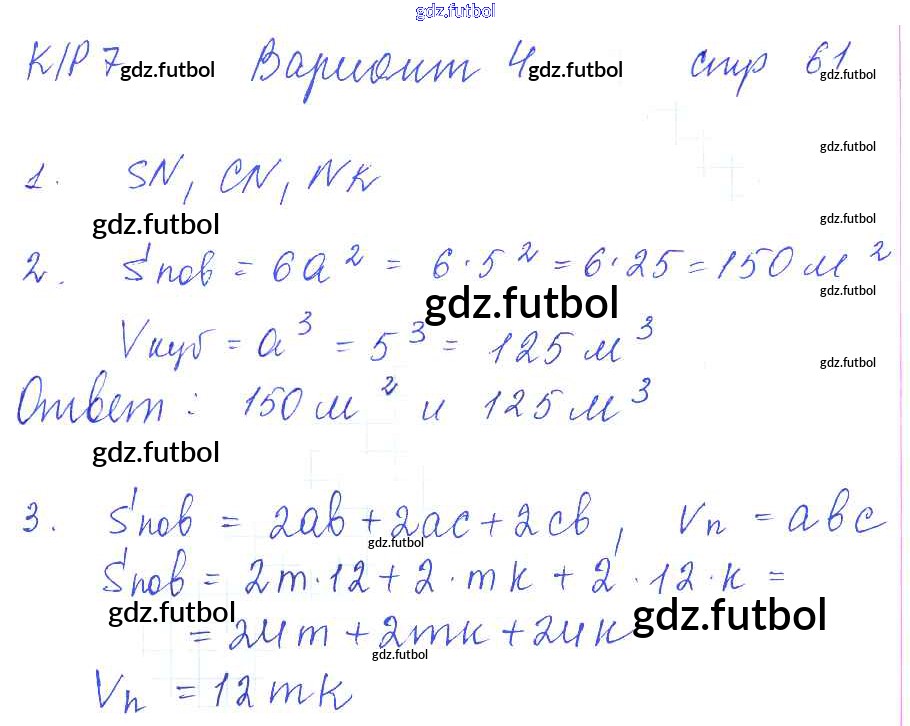 gdz.futbol
К/Р 7 gdz.futbol Вариант 4 gdz.futbol стр 61
gdz.futbol
gdz.futbol
1. SN, CN, NK
gdz.futbol gdz.futbol
2. Sпов = 6a² = 6·5² = 6·25 = 150 м²
gdz.futbol gdz.futbol
Vкуб = a³ = 5³ = 125 м³
gdz.futbol
Ответ: 150 м² и 125 м³
gdz.futbol
3. Sпов = 2ab + 2ac + 2cb, Vп = abc
gdz.futbol
Sпов = 2m·12 + 2·mk + 2·12·k =
gdz.futbol gdz.futbol
= 24m + 2mk + 24k
gdz.futbol
Vп = 12mk